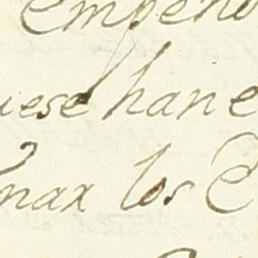 Empeno
uese han e
nax los C